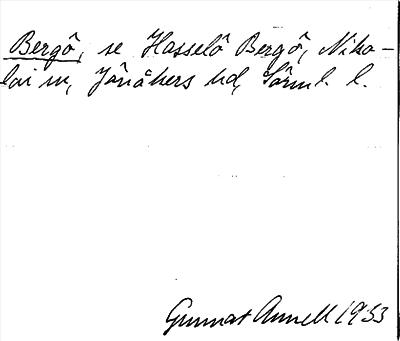 Bergö, se Hasselö Bergö, Niko-
lai sn, Jönåkers hd, Sörml. l.
Gunnar Annell 1953